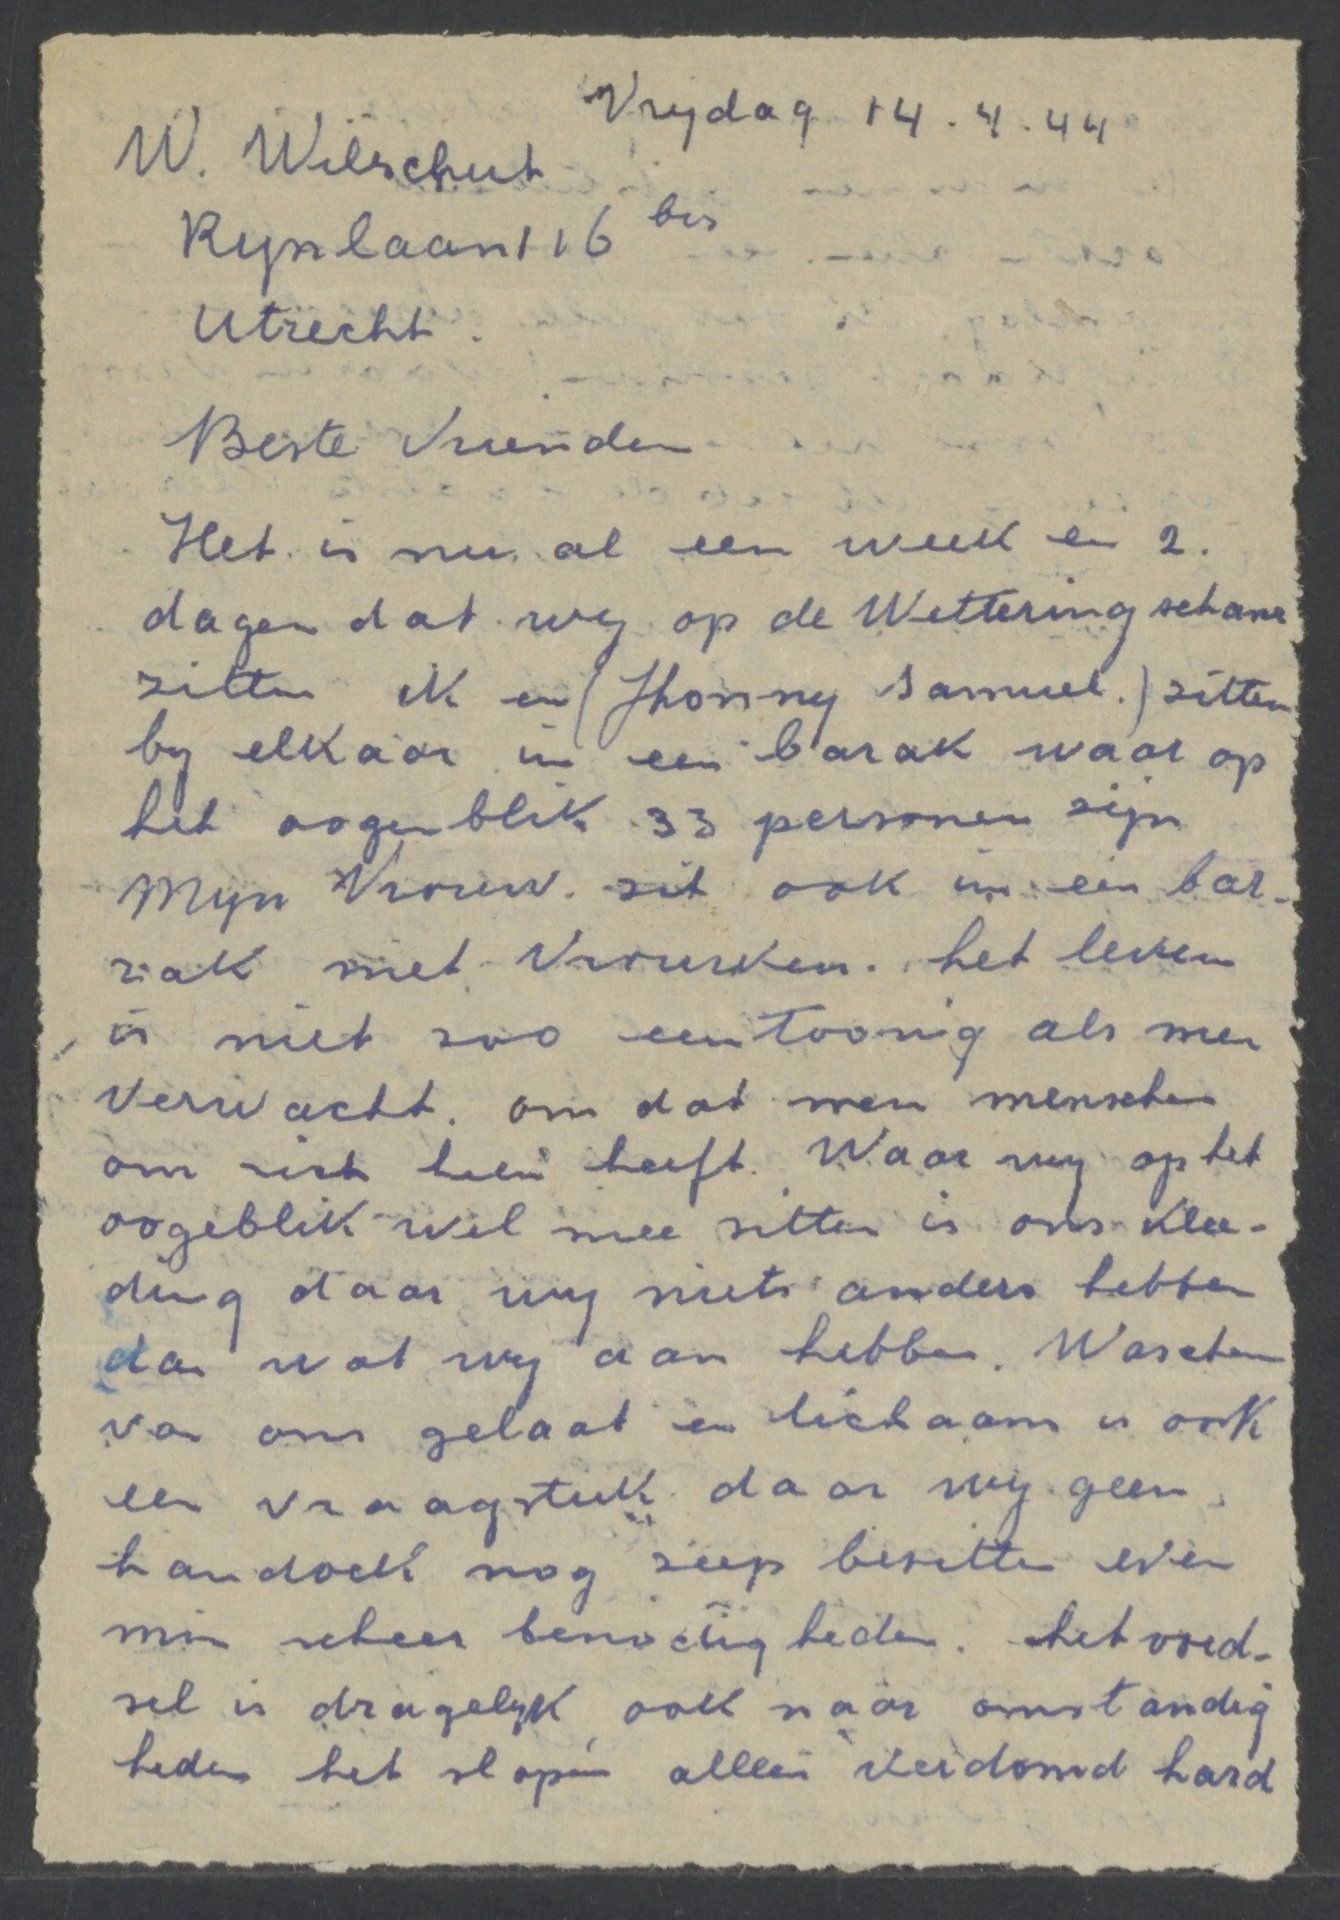 Vrydag 14.4.44
W. Wilschut
Rynlaan 116 bis
Utrecht.
Beste Vrienden
Het is nu al een week en 2.
dagen dat wy op de Wettering schans
zitten ik en (Jhonny Samuel.) zitten
by elkaar in een barak waar op
het oogenblik 33 personen zijn
Myn Vrouw. zit ook in een bar-
rak met Vrouwen. het leven
is niet zoo een toonig als men
verwacht. om dat men menschen
om zich heen heeft. Waar wy op het
oogeblik wel mee zitten is ons klee-
ding daar wy niets anders hebben
dan wat wy aan hebben. Waschen
van ons gelaat en lichaam is ook
een vraagstuk daar wy geen
handoek nog zeep bezitten even
min scheer benodigheden. het voed-
sel is dragelyk ook naar omstandig
heden het slapen alleen verdomd hard